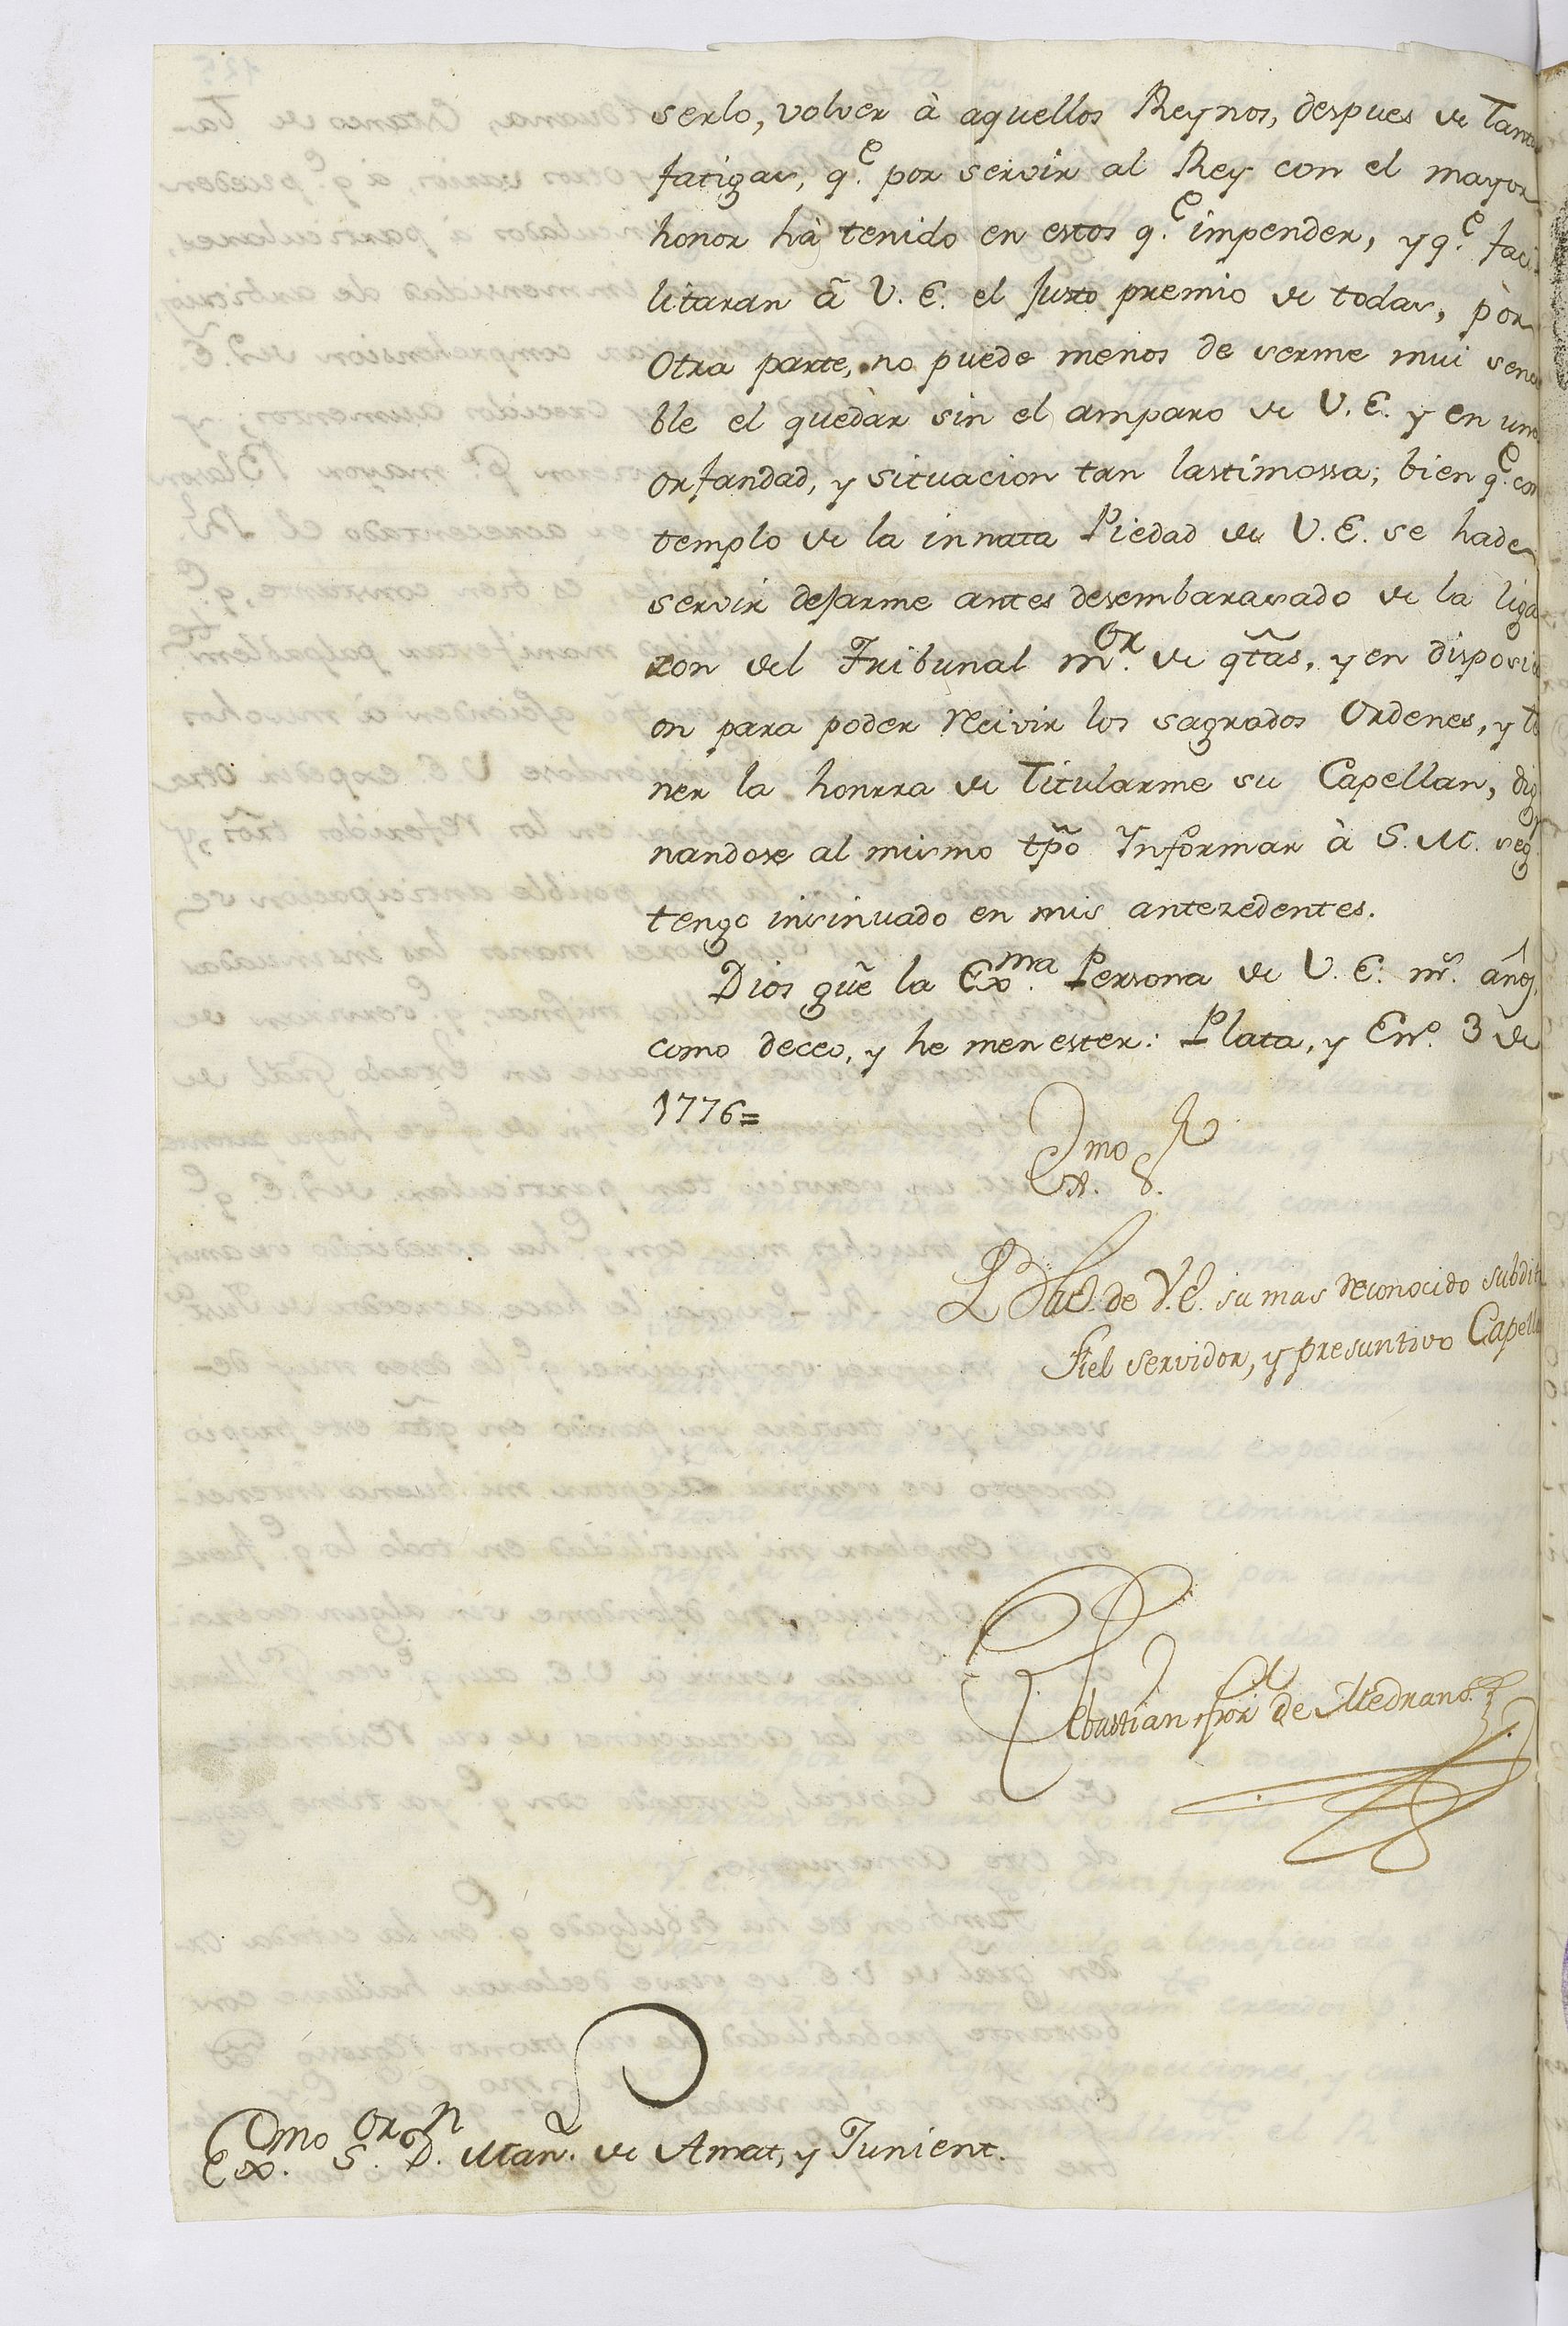 serlo, volver à aquellos Reynos, despues de Tan
fatigas, q.e por servir al Rey con el mayor
honor hà tenido en estos q.e impender, y q.e faci-
litaran â V. E. el Justo premio de todas, pòr
Otra parte, no puede menos de serme mui sen
ble el quedàr sin el amparo de V. E. y en un
orfandad, y situacion tan lastimossa; bien q.e con
templo de la innata Piedad de V. E. se hade
servir dejarme antes desembarasado de la liga
zon del Tribunal m.or de qtãs, y en disposici
on para poder recivir los sagrados Ordenes, y te
ner la honrra de Titularme su Capellan, dig
nandose al mismo tp̃o Informar à S. M. seg
tengo insinuado en mis antezedentes.
Dios gũe la Ex.ma Persona de V. E. m.s añ.s
como deceo, y he menester: Plata, y En.o 3 de
1776=
Ex.mo S.
BLM. de V. E. su mas reconocido subdit
Fiel servidor, y presuntivo Capella
Sebastian de Medrano
Ex.mo S.or D.n Man. de Amat, y Junient.